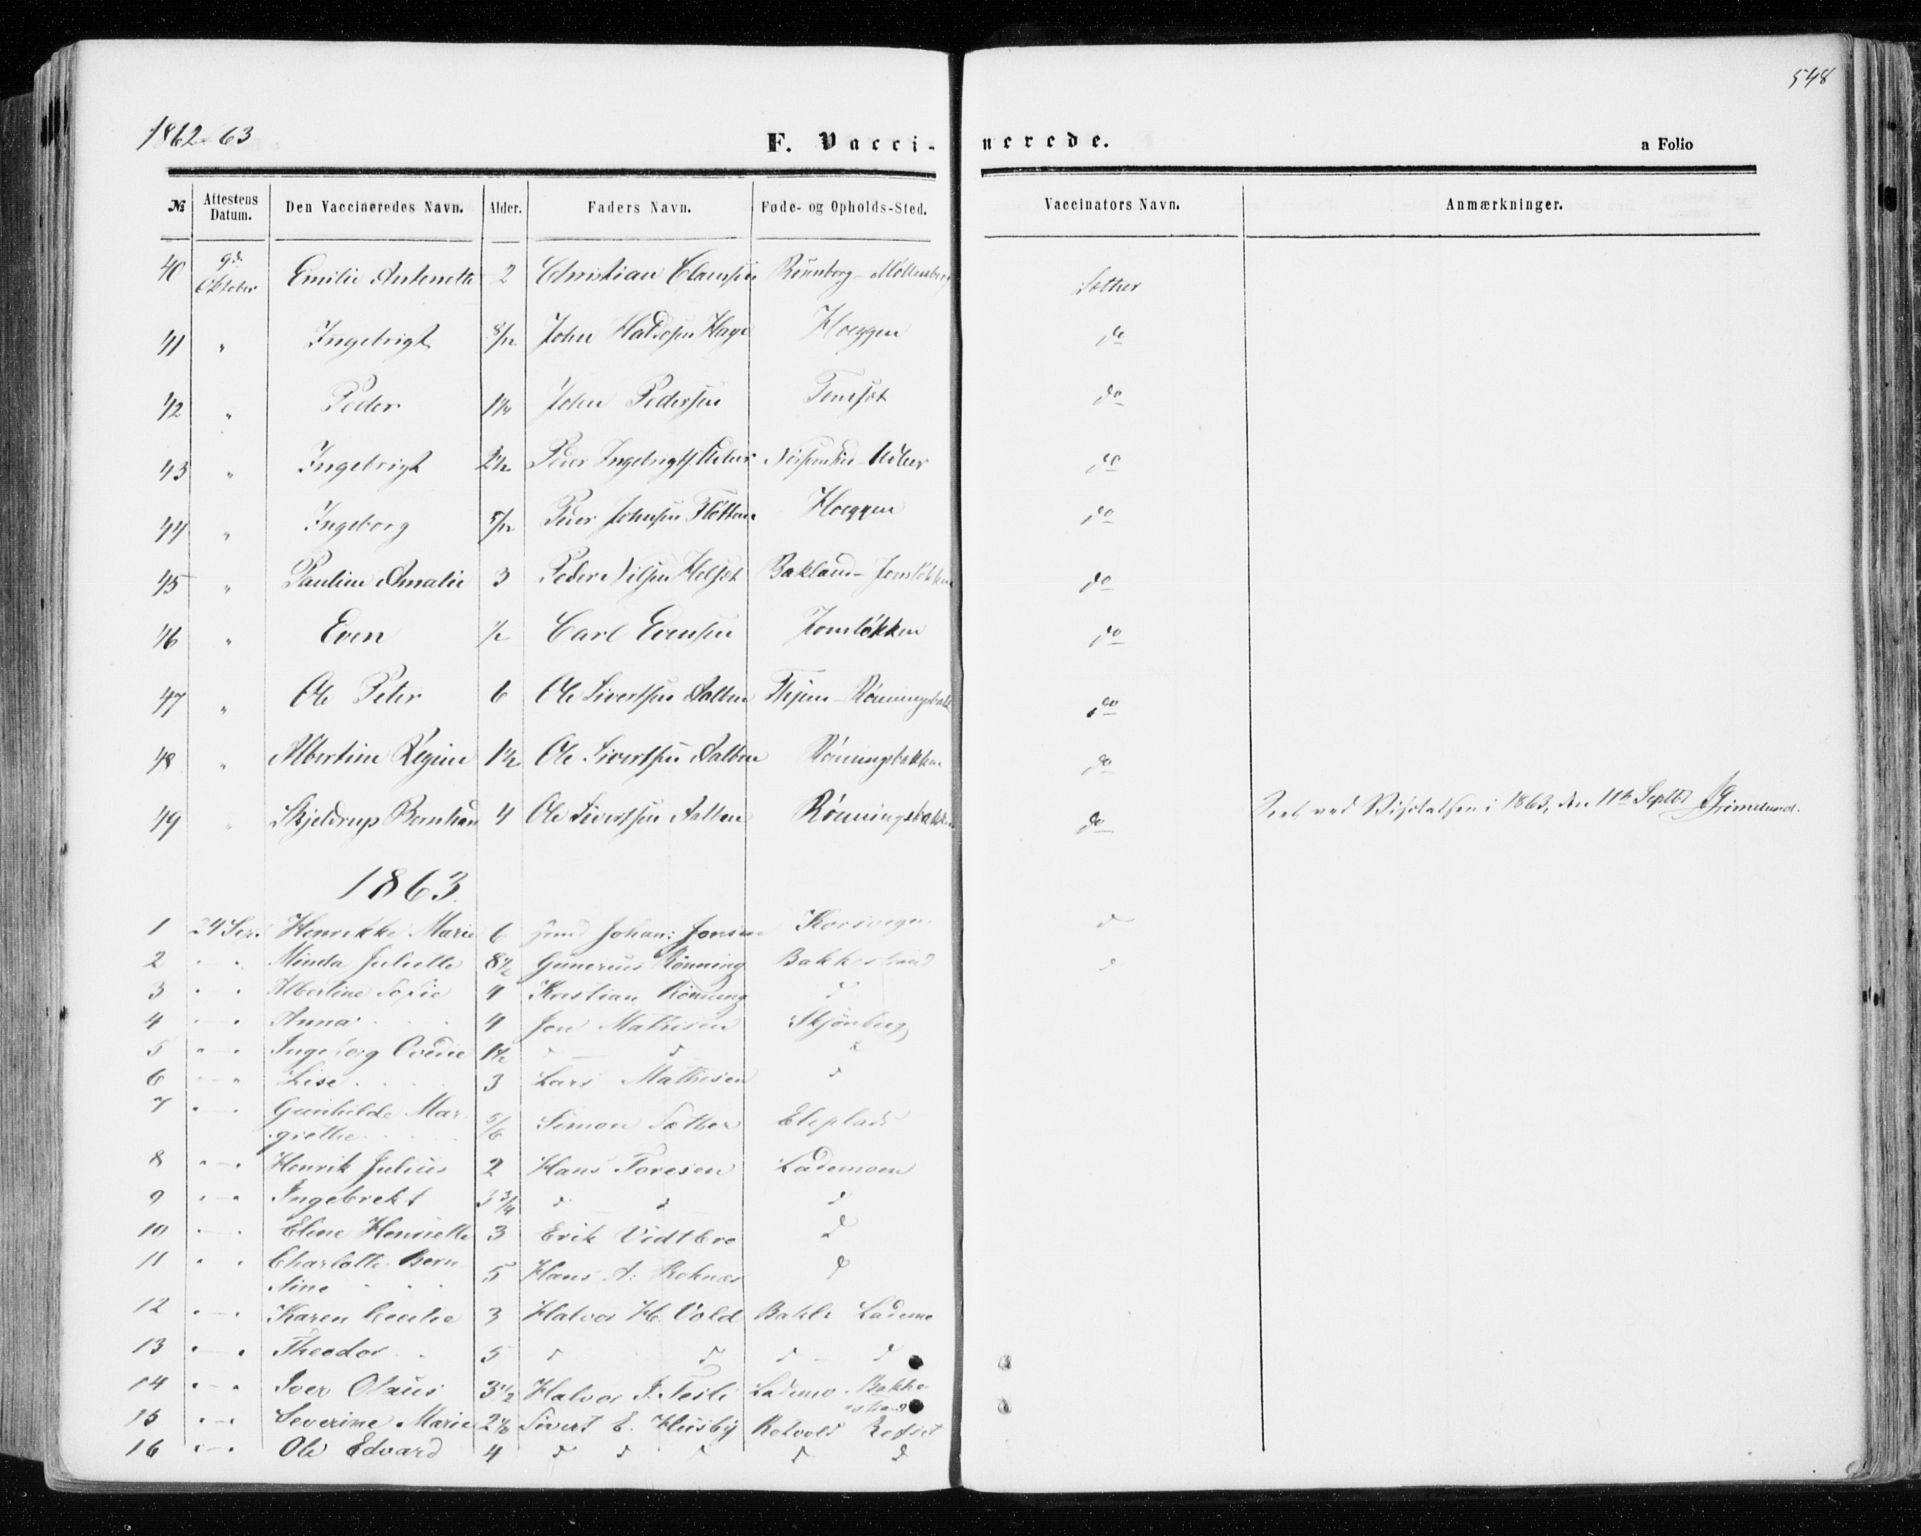 548
1862-63
F. Vacci-nerede.
a Folio
№ Attestens Datum. Den Vaccineredes Navn. Alder. Faders Navn. Føde- og Opholds-Sted. Vaccinators Navn. Anmærkninger.
40 9de Oktober Emilie Antonette 2 Christian Clausen Rønnborg - Møllenberg Sæther
41 " Ingebrigt 8/12 John Haldosen Hage Hoeggen do
42 " Peder 1½ John Pedersen Tomset do
43 " Ingebrigt 2½ Peder Ingebrigts. do
44 " Ingeborg 5/12 Peder Johnsen Flotten Hoeggen do
45 " Pauline Amalie 3 Peder Nilsen Helset Bakland - Jonsløkken do
46 " Even ½ Carl Evensen Jonsløkken do
47 " Ole Peter 6 Ole Sivertsen Aalben - Rønningsbakk do
48 " Albertine Regine 1½ Ole Sivertsen Aalben Rønningsbakken do
49 " Skjeldrup Bernhan 4 Ole Sivertsen Aalben Rønningsbakken do Seet ved Visitatsen i 1863, den 11te Septbr Grimelund.
1863.
1 24 Henrikke Marie 6 Johan: Jonsen Korsvegen d
2 - " Minda Juliette 8½ Gunerius Rønning Bakkestrand d
3 " - " Albertine Sofie 4 Kristian Rønning d
4 " - " Anna 4 Jon Mathisen Skjønberg
5 " - " Ingeborg Ovedie 1½ d d d
6 " - " Lise 3 Lars Mathisen d
7 " - " Gunhilde Mar-
griethe 5/6 Simon Sæther Eleplads
8 " - " Henrik Julius 2 Hans Toresen Lademoen
9 " - " Ingebrekt 3 3/4 d d d
10 " - " Eline Henriette 3 Erik Vidtbro d
11 " " Charlotte Bern
tine 5 Hans A: Roknæs d
12 " - " Karen Cecelie 3 Halvor H. Vold Bakle Lademo
13 " - " Theodor 5 d d d - d
14 " - " Iver Olaus 3½ Halvor J. Tesli Lademo. Bakke
strand
15 " - " Severine Marie 2½ Sivert E. Husby Rotvold
16 " - " Ole Edvard 4 d d d d d